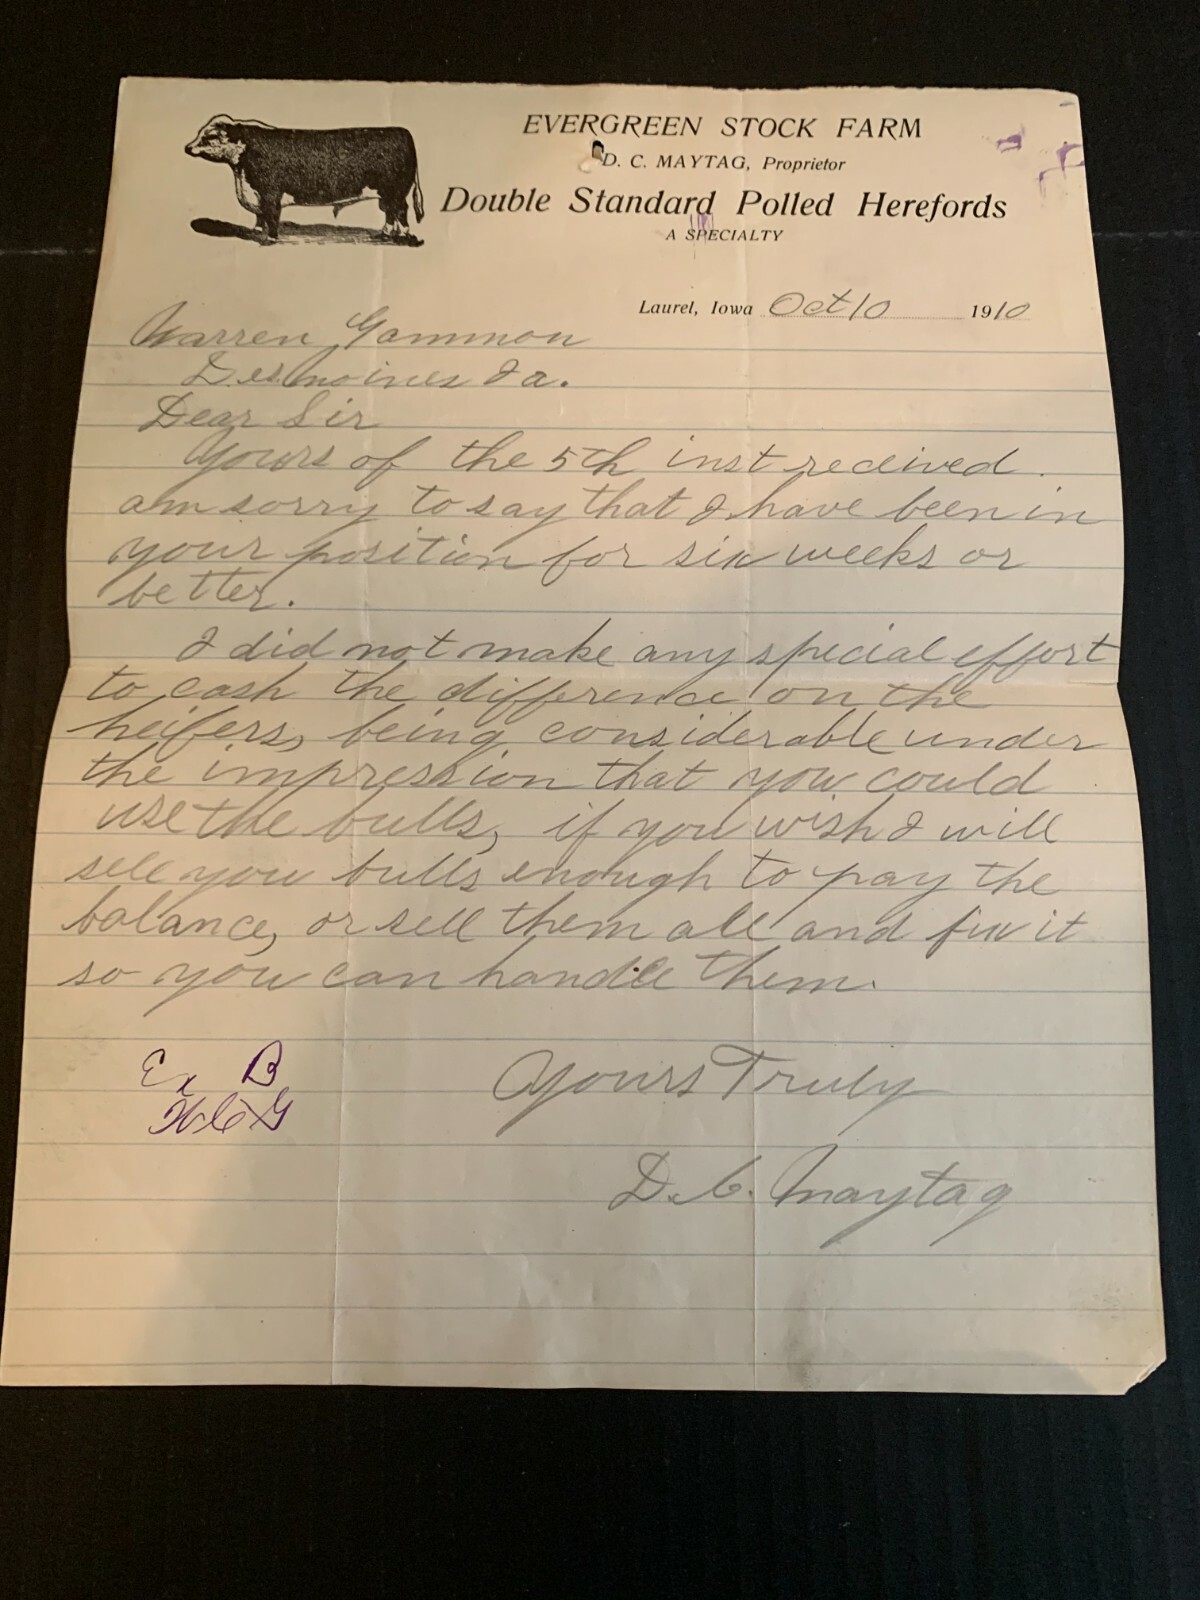 EVERGREEN STOCK FARM
D. C. MAYTAG, Proprietor
Double Standard Polled Herefords
A SPECIALTY
Laurel, Iowa Oct 10 1910
Warren Gammon
Des moines Ia.
Dear Sir
Yours of the 5th inst recived.
am sorry to say that I have been in
your position for six weeks or
better.
I did not make any special effort
to cash the difference on the
heifers, being considerable under
the impression that you could
use the bulls, if you wish I will
sell you bulls enough to pay the
balance, or sell them all and fix it
so you can handle them.
Yours Truly
D. C. Maytag
Ex B